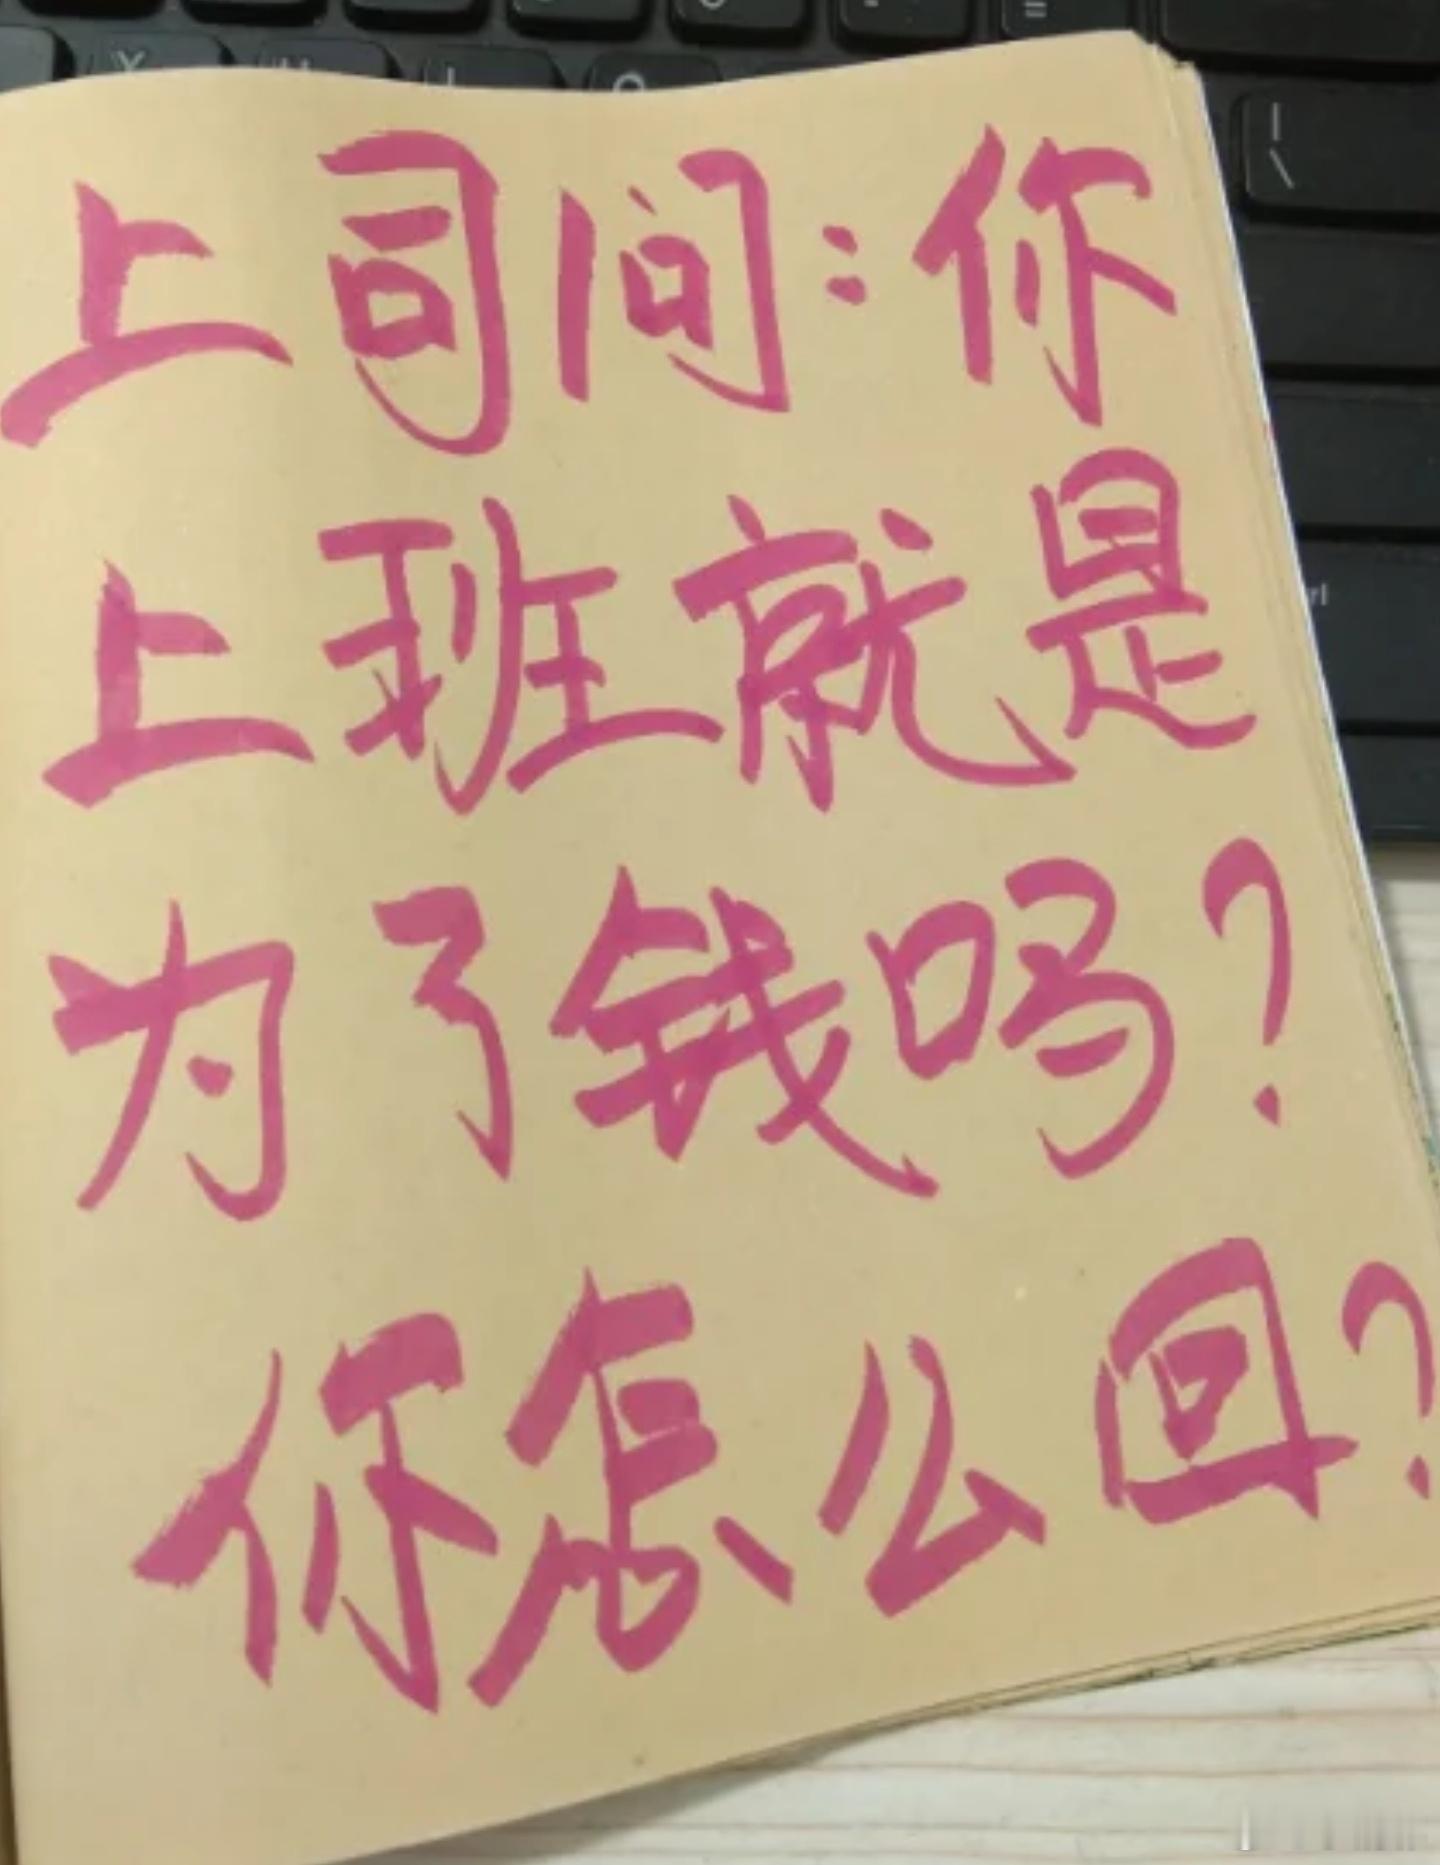 上司问:你
上班就是
为了钱吗?
你怎么回?